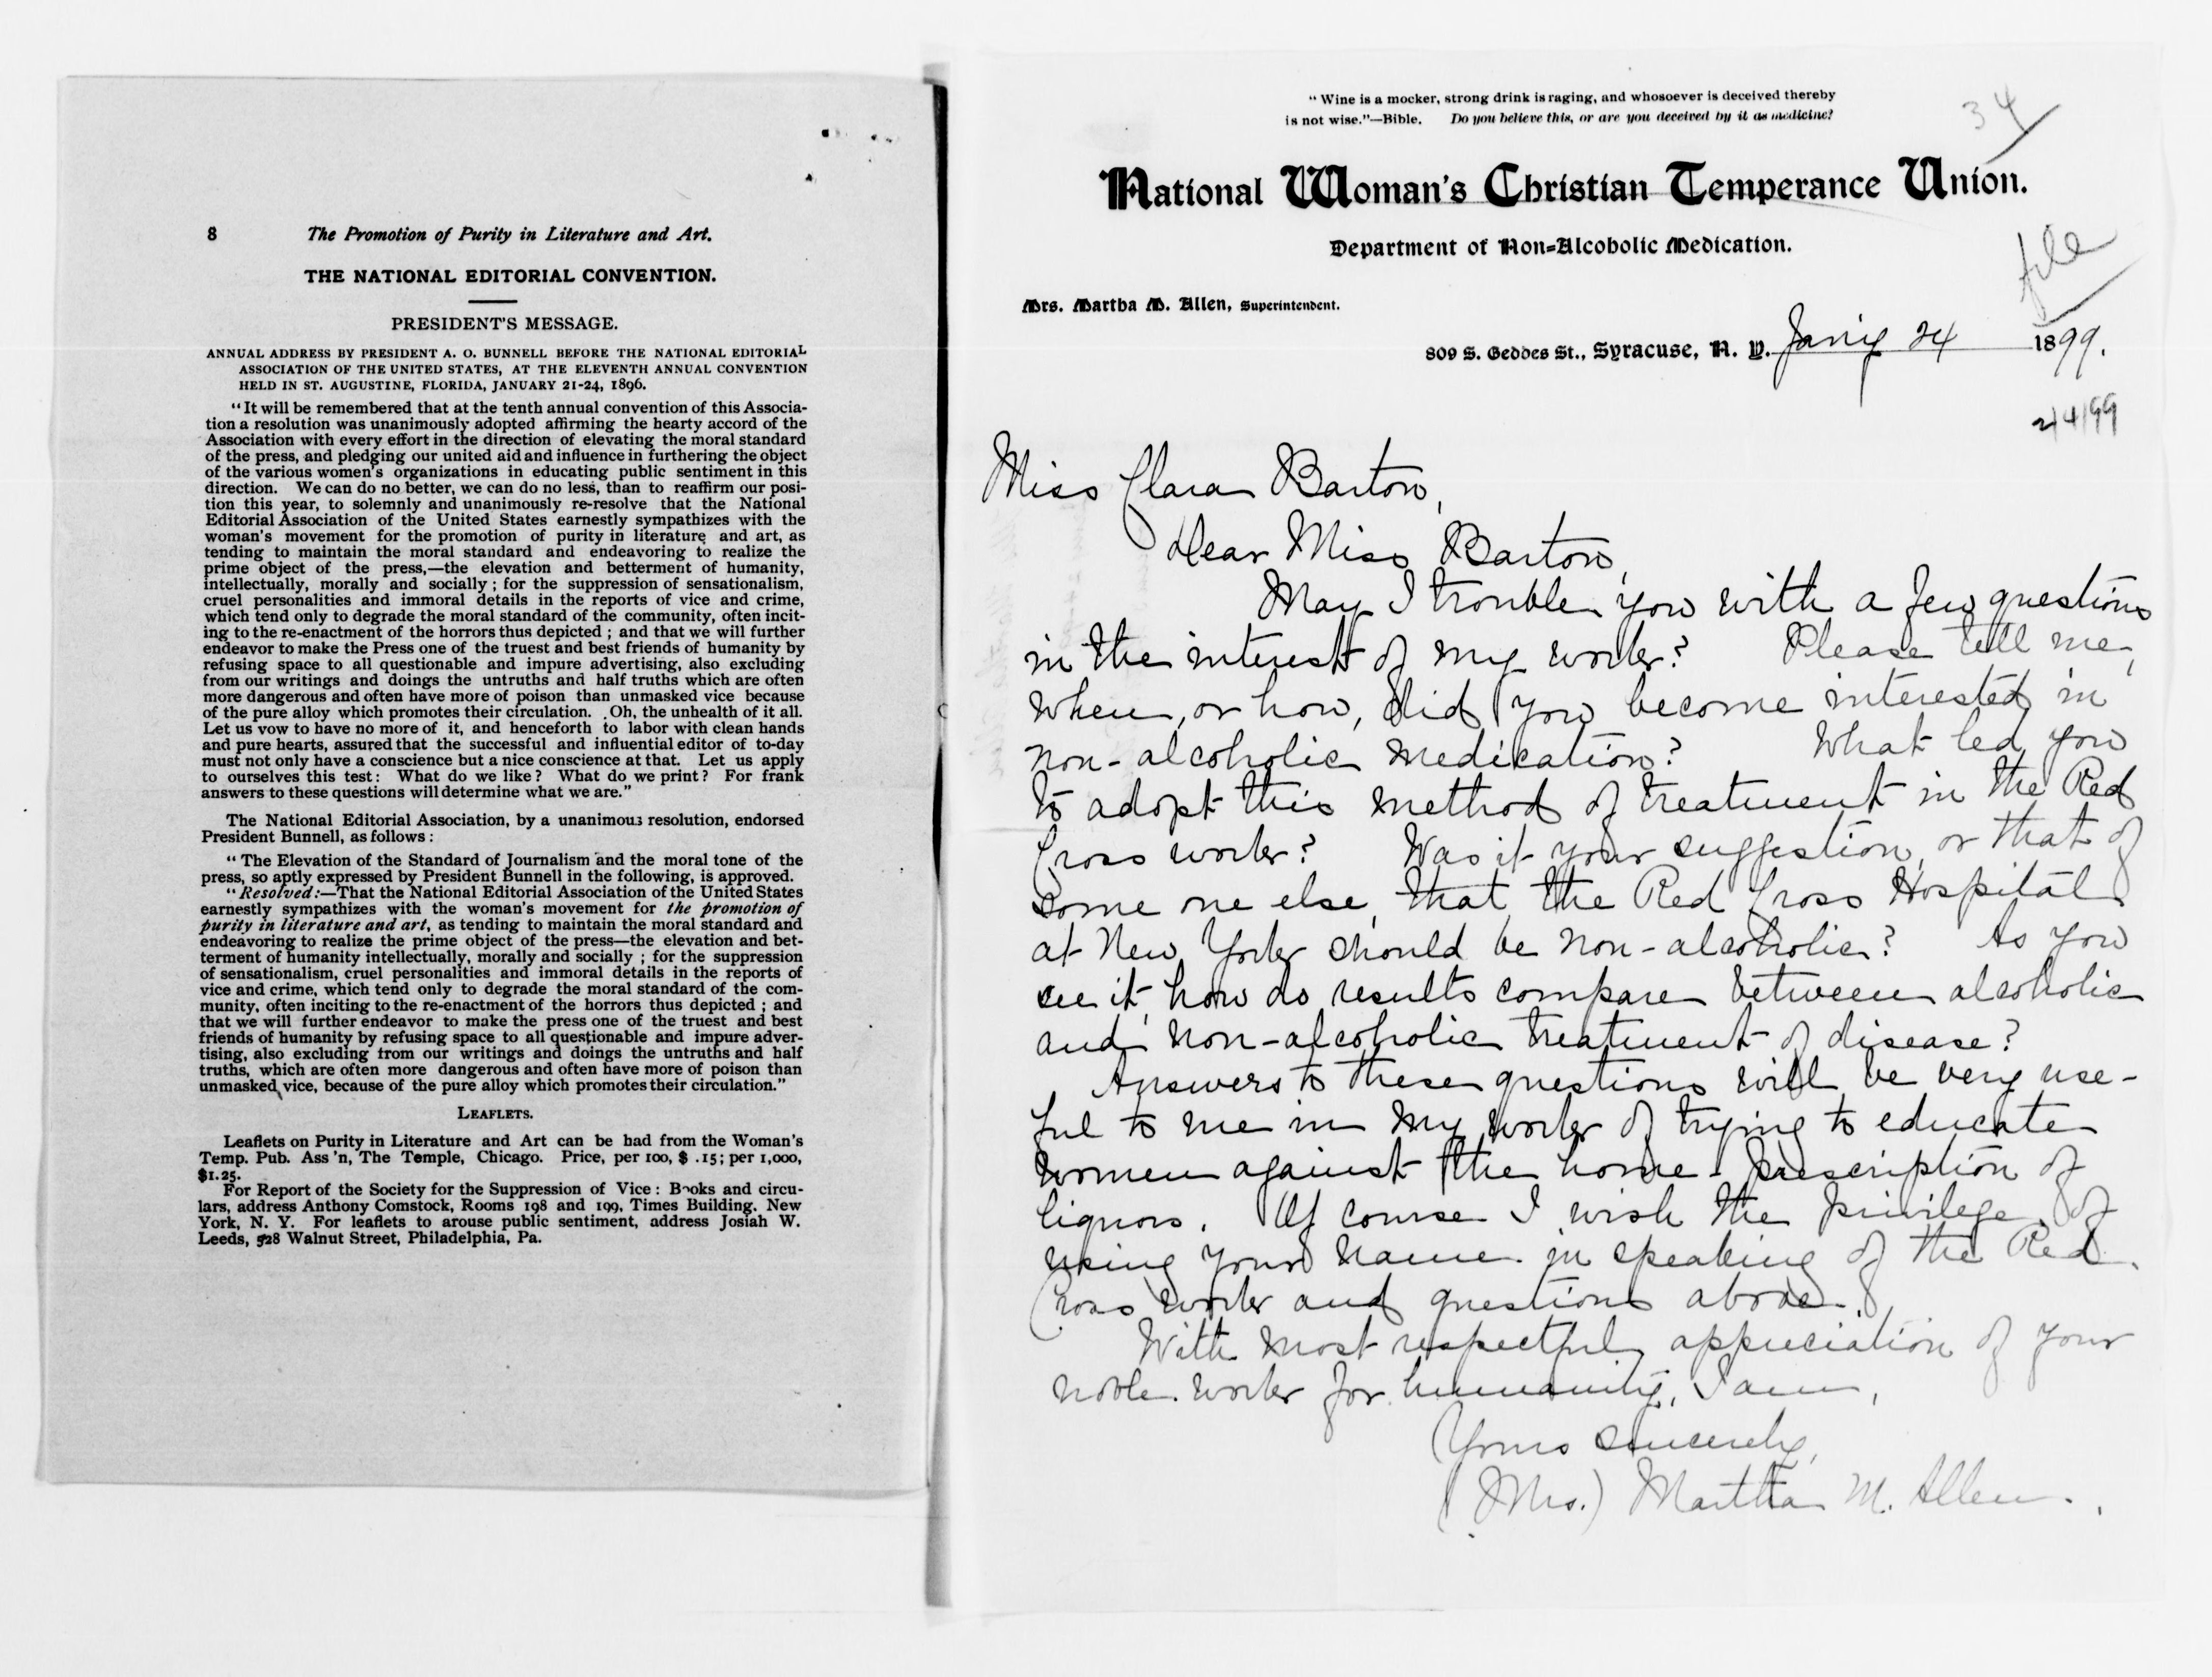 8 The Promotion of Purity in Literature and Art.
THE NATIONAL EDITORIAL CONVENTION.
PRESIDENT'S MESSAGE.
ANNUAL ADDRESS BY PRESIDENT A. O. BUNNELL BEFORE THE NATIONAL EDITORIAL
ASSOCIATION OF THE UNITED STATES, AT THE ELEVENTH ANNUAL CONVENTION
HELD IN ST. AUGUSTINE, FLORIDA, JANUARY 21-24, 1896.
"It will be remembered that at the tenth annual convention of this Associa-
tion a resolution was unanimously adopted affirming the hearty accord of the
Association with every effort in the direction of elevating the moral standard
of the press, and pledging our united aid and influence in furthering the object
of the various women's organizations in educating public sentiment in this
direction. We can do no better, we can do no less, than to reaffirm our posi-
tion this year, to solemnly and unanimously re-resolve that the National
Editorial Association of the United States earnestly sympathizes with the
woman's movement for the promotion of purity in literature and art, as
tending to maintain the moral standard and endeavoring to realize the
prime object of the press,—the elevation and betterment of humanity,
intellectually, morally and socially; for the suppression of sensationalism,
cruel personalities and immoral details in the reports of vice and crime,
which tend only to degrade the moral standard of the community, often incit-
ing to the re-enactment of the horrors thus depicted; and that we will further
endeavor to make the Press one of the truest and best friends of humanity by
refusing space to all questionable and impure advertising, also excluding
from our writings and doings the untruths and half truths which are often
more dangerous and often have more of poison than unmasked vice because
of the pure alloy which promotes their circulation. Oh, the unhealth of it all.
Let us vow to have no more of it, and henceforth to labor with clean hands
and pure hearts, assured that the successful and influential editor of to-day
must not only have a conscience but a nice conscience at that. Let us apply
to ourselves this test: What do we like? What do we print? For frank
answers to these questions will determine what we are."
The National Editorial Association, by a unanimous resolution, endorsed
President Bunnell, as follows:
"The Elevation of the Standard of Journalism and the moral tone of the
press, so aptly expressed by President Bunnell in the following, is approved.
"Resolved:—That the National Editorial Association of the United States
earnestly sympathizes with the woman's movement for the promotion of
purity in literature and art, as tending to maintain the moral standard and
endeavoring to realize the prime object of the press—the elevation and bet-
terment of humanity intellectually, morally and socially; for the suppression
of sensationalism, cruel personalities and immoral details in the reports of
vice and crime, which tend only to degrade the moral standard of the com-
munity, often inciting to the re-enactment of the horrors thus depicted; and
that we will further endeavor to make the press one of the truest and best
friends of humanity by refusing space to all questionable and impure adver-
tising, also excluding from our writings and doings the untruths and half
truths, which are often more dangerous and often have more of poison than
unmasked vice, because of the pure alloy which promotes their circulation."
LEAFLETS.
Leaflets on Purity in Literature and Art can be had from the Woman's
Temp. Pub. Ass'n, The Temple, Chicago. Price, per 100, $ .15; per 1,000,
$1.25.
For Report of the Society for the Suppression of Vice: Books and circu-
lars, address Anthony Comstock, Rooms 198 and 199, Times Building, New
York, N. Y. For leaflets to arouse public sentiment, address Josiah W.
Leeds, 528 Walnut Street, Philadelphia, Pa.
"Wine is a mocker, strong drink is raging, and whosoever is deceived thereby
is not wise."—Bible. Do you believe this, or are you deceived by it as medicine?
34
National Woman's Christian Temperance Union.
Department of Non-Alcoholic Medication.
file
Mrs. Martha M. Allen, Superintendent.
809 S. Geddes St., Syracuse, N. Y. Jan'y 24 1899.
2/4/99
Miss Clara Barton,
Dear Miss Barton,
May I trouble you with a few questions
in the interest of my work? Please tell me,
when, or how, did you become interested in
non-alcoholic medication? What led you
to adopt this method of treatment in the Red
Cross work? Was it your suggestion, or that of
some one else, that the Red Cross Hospital
at New York should be non-alcoholic? As you
see it, how do results compare between alcoholic
and non-alcoholic treatment of disease?
Answers to these questions will be very use-
ful to me in my work of trying to educate
women against the home-prescription of
liquors. Of course I wish the privilege of
using your name in speaking of the Red
Cross work and questions above.
With most respectful appreciation of your
noble work for humanity, I am,
Yours sincerely,
(Mrs.) Martha M. Allen.